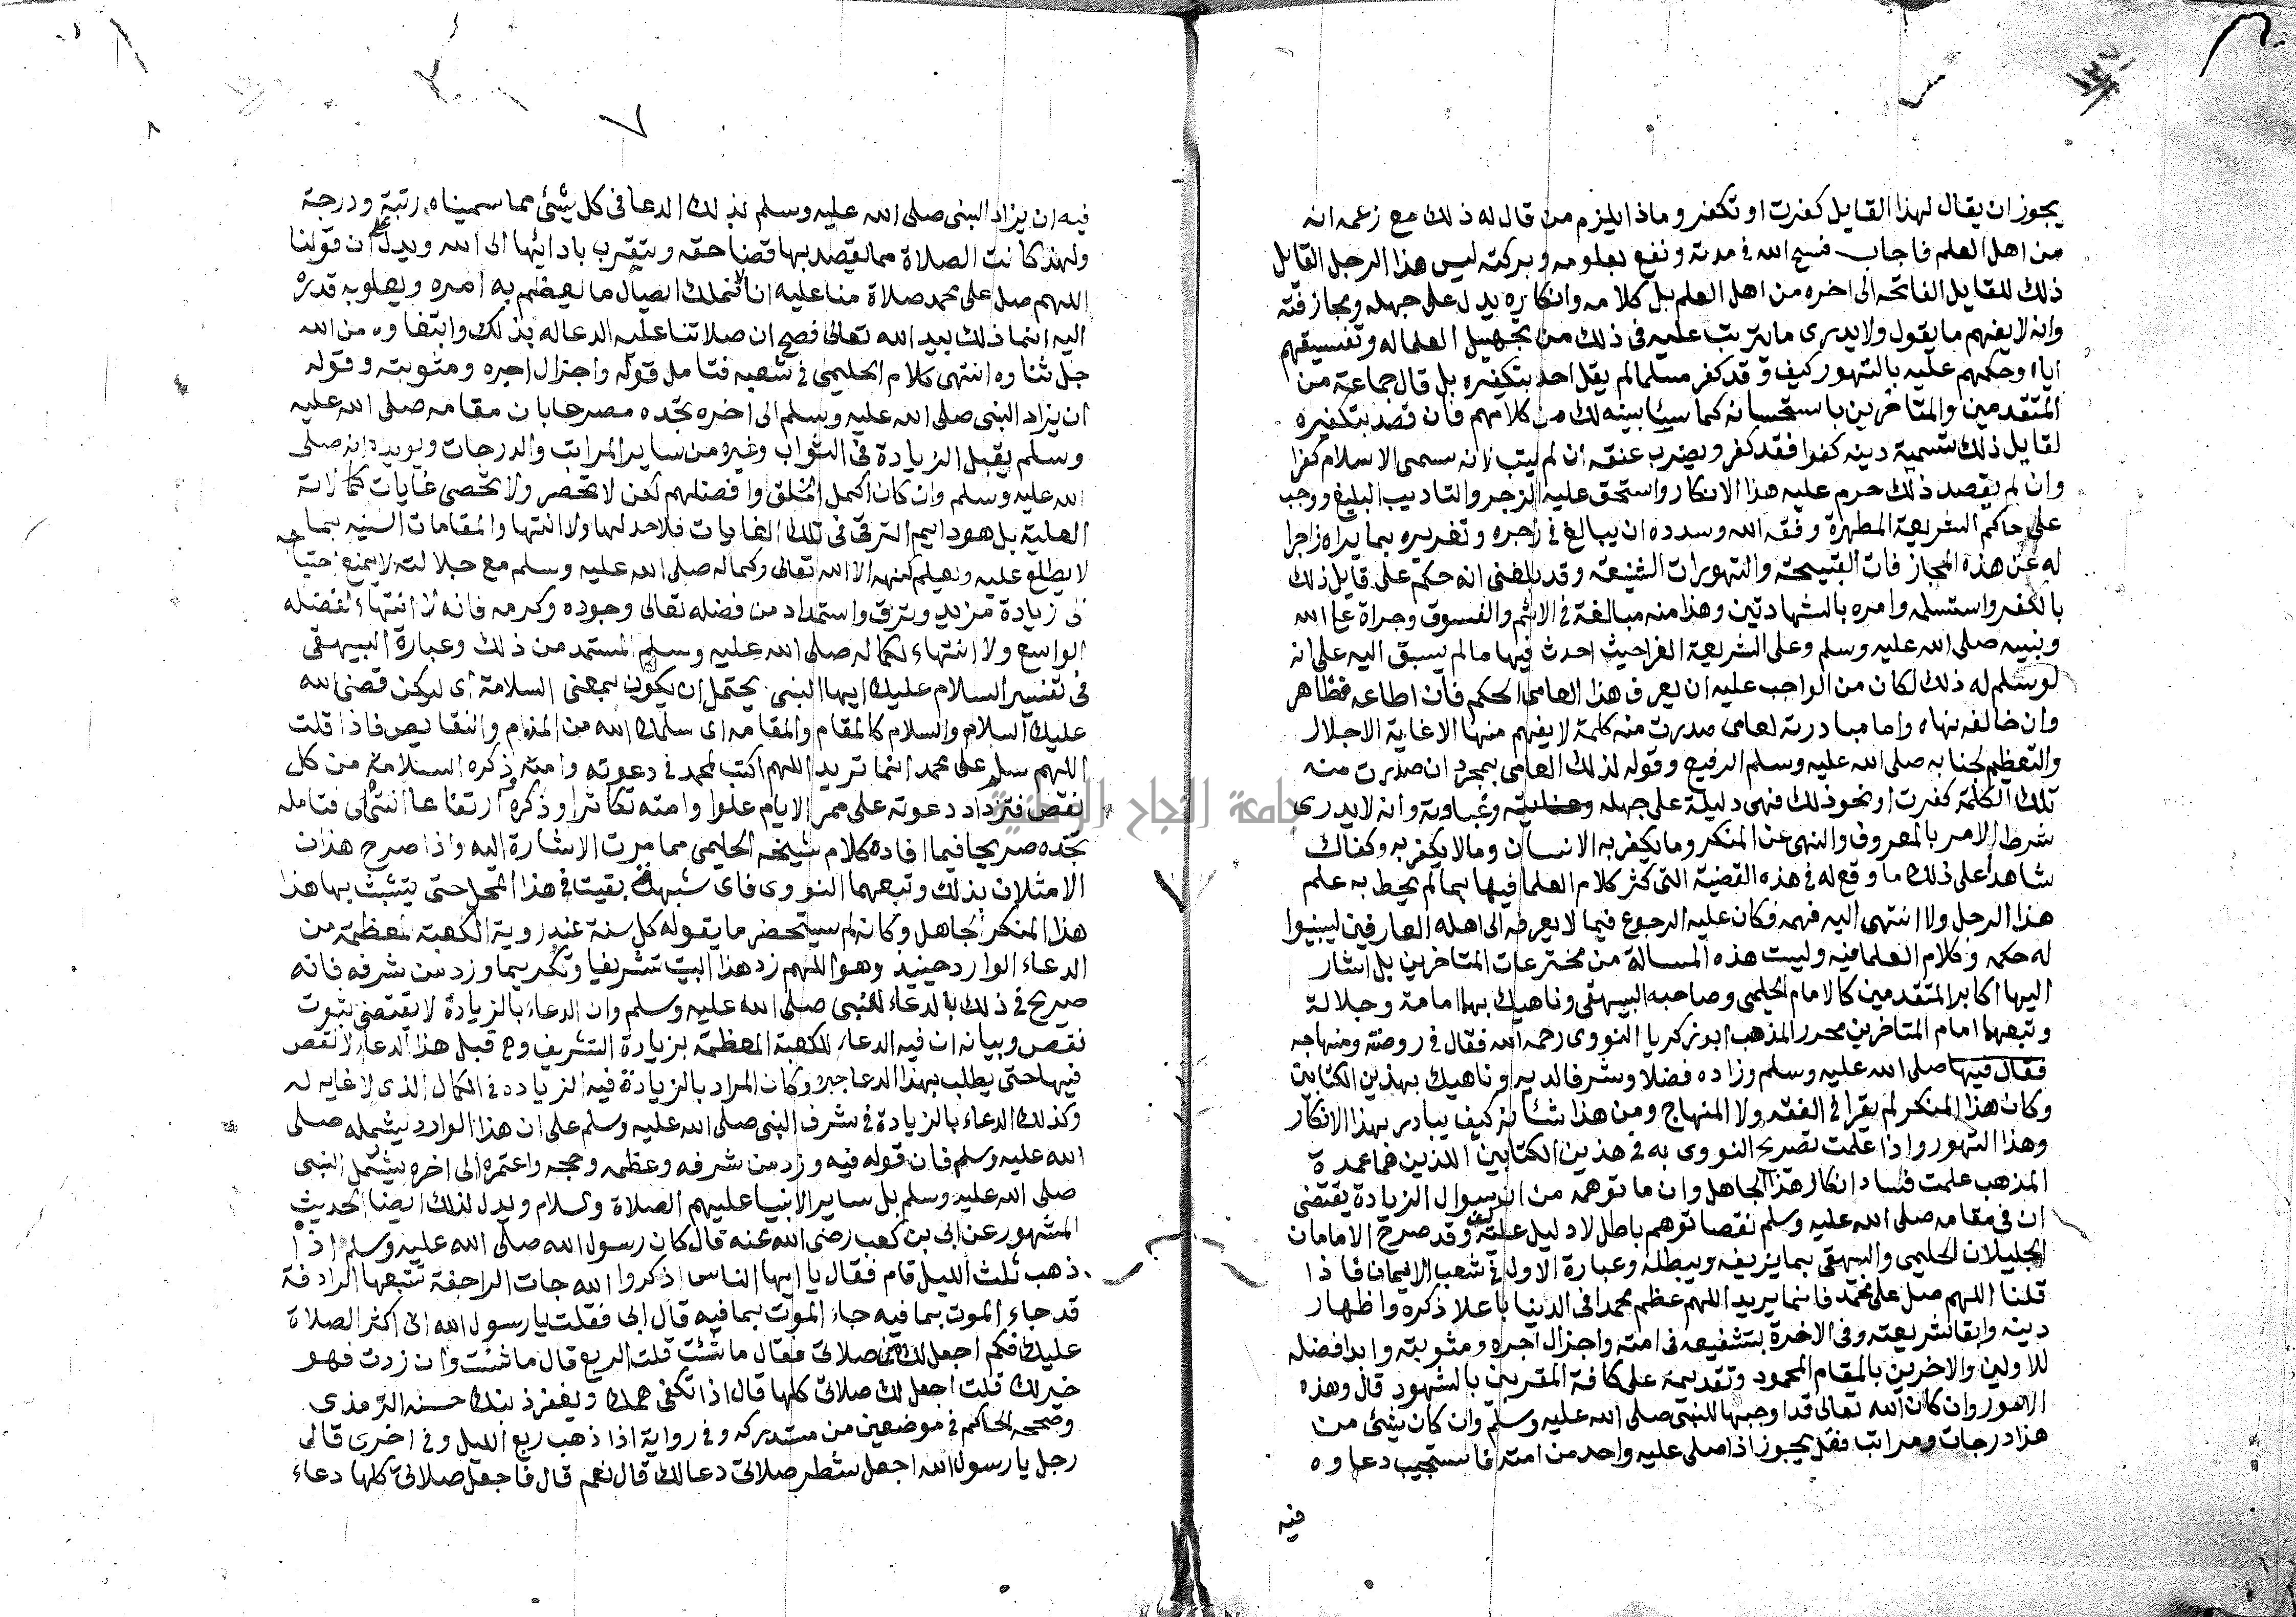 يجوز ان يقال لهذا القايل كفرت او تكفر وماذا يلزم من قال له ذلك مع زعمه انه
من اهل العلم فاجاب فسح الله في مدته ونفع بعلومه وبركته ليس هذا الرجل القايل
ذلك للقايل الفاتحه الى اخره من اهل العلم بل كلامه وانكاره يدل على جهله ومجازفته
وانه لا يفهم ما يقول ولا يدرى ما يترتب عليه فى ذلك من تجهيل العلما له وتفسيقهم
اياه وحكمهم عليه بالتهور كيف وقد كفر مسلما لم يقل احد بتكفيره بل قال جماعة من
المتقدمين والمتاخرين باستحسانه كما سيا بينه لك من كلامهم فان قصد بتكفيره
لقايل ذلك تسمية دينه كفرا فقد كفر ويضرب عنقه ان لم يتب لانه سمى الاسلام كفرا
وان لم يقصد ذلك حرم عليه هذا الانكار واستحق عليه الزجر والتاديب البليغ ووجب
على حاكم الشريعة المطهرة وفقه الله وسدده ان يبالغ في زجره وتعزيره بما يراه زاجرا
له عن هذه المجازفات القبيحة والتهورات الشنيعة وقد بلغنى انه حكم على قايل ذلك
بالكفر واستسلمه وامره بالشهادتين وهذا منه مبالغة في الاثم والفسوق وجراة على الله
ونبيه صلى الله عليه وسلم وعلى الشريعة الغرا حيث احدث فيها ما لم يسبق اليه على انه
لو سلم له ذلك لكان من الواجب عليه ان يعرف هذا العامى الحكم فان اطاعه فظاهر
وان خالفه نهاه واما مبادرته لعامى صدرت منه كلمة لا يفهم منها الا غاية الاجلال
والتعظيم لجنابه صلى الله عليه وسلم الرفيع وقوله لذلك العامى بمجرد ان صدرت منه
تلك الكلمة كفرت او نحو ذلك فهى دليلة على جهله وغباوته وانه لا يدرى
شرط الامر بالمعروف والنهى عن المنكر وما يكفر به الانسان وما لا يكفر به وكفاك
شاهدا على ذلك ما وقع له فى هذه القضية التى كثر كلام العلما فيها بما لم يحط به علم
هذا الرجل ولا انتهى اليه فهمه فكان عليه الرجوع فيما لا يعرفه الى اهله العارفين ليبينوا
له حكمه وكلام العلما فيه وليست هذه المسالة من مخترعات المتاخرين بل اشار
اليها اكابر المتقدمين كالامام الحليمى وصاحبه البيهقى وناهيك بهما امامة وجلالة
وتبعهما امام المتاخرين محرر المذهب ابو زكريا النووى رحمه الله فقال فى روضته ومنهاجه
فقال فيها صلى الله عليه وسلم وزاده فضلا وشرفا لديه وناهيك بهذين الكتابين
وكان هذا المنكر لم يقرا فى الفقه ولا المنهاج ومن هذا شانه كيف يبادر بهذا الانكار
وهذا التهور واذا علمت تصريح النووى به فى هذين الكتابين اللذين هما عمدة
المذهب علمت فساد انكار هذا الجاهل وان ما توهمه من ان سوال الزيادة يقتضى
ان فى مقامه صلى الله عليه وسلم نقصا توهم باطل لا دليل عليه وقد صرح الامامان
الجليلان الحليمى والبيهقى بما يزيفه ويبطله وعبارة الاول فى شعب الايمان فاذا
قلنا اللهم صل على محمد فانما يريد اللهم عظم محمدا فى الدنيا باعلا ذكره واظهار
دينه وابقا شريعته وفى الاخرة بتشفيعه فى امته واجزال اجره ومثوبته وابدا فضله
للاولين والاخرين بالمقام المحمود وتقديمه على كافة المقربين بالشهود قال وهذه
الامور وان كان الله تعالى قد اوجبها للنبى صلى الله عليه وسلم وان كان شئ من
هذا درجات ومراتب فقد يجوز اذا صلى عليه واحد من امته فاستجيب دعاوه
فيه
فيه ان يزاد النبى صلى الله عليه وسلم بذلك الدعا فى كل شئ مما سميناه رتبة ودرجة
ولهذا كانت الصلاة مما يقصد بها قضا حقه ويتقرب بادائها الى الله ويدل على ان قولنا
اللهم صل على محمد صلاة منا عليه انا لا نملك ايصال ما يعظم به امره ويعلو به قدره
اليه انما ذلك بيد الله تعالى فصح ان صلاتنا عليه الدعا له بذلك وابتغاوه من الله
جل ثناوه انتهى كلام الحليمى فى شعبه فتامل قوله واجزال اجره ومثوبته وقوله
ان يزاد النبى صلى الله عليه وسلم الى اخره تجده مصرحا بان مقامه صلى الله عليه
وسلم يقبل الزيادة فى الثواب وغيره من ساير المراتب والدرجات ويويده انه صلى
الله عليه وسلم وان كان اكمل الخلق وافضلهم لكن لا تنحصر ولا تحصى غايات كمالاته
العلية بل هو دايم الترقى فى تلك الغايات فلا حد لها ولا انتها والمقامات السنيه مما
لا يطلع عليه ويعلم كنهه الا الله تعالى وكماله صلى الله عليه وسلم مع جلالته لا يمنع احتياجه
الى زيادة مزيد وترق واستمداد من فضله تعالى وجوده وكرمه فانه لا انتهاء لفضله
الواسع ولا انتهاء لكماله صلى الله عليه وسلم المستمد من ذلك وعبارة البيهقى
فى تفسير السلام عليك ايها النبى يحتمل ان يكون بمعنى السلامة اى ليكن قضى الله
عليك السلام والسلام كالمقام والمقامه اى سلمك الله من المذام والنقايص فاذا قلت
اللهم سلم على محمد انما تريد اللهم اكتب لمحمد فى دعوته وامته وذكره السلامة من كل
نقص فتزداد دعوته على ممر الايام علوا وامته تكاثرا وذكره ارتفاعا انتهى فتامله
تجده صريحا فيما افاده كلام شيخه الحليمى مما مرت الاشارة اليه واذا صرح هذان
الامثلان بذلك وتبعهما النووى فاى شبهة بقيت فى هذا المحل حتى يتشبث بها هذا
هذا المنكر الجاهل وكانه لم يستحضر ما يقوله كل سنة عند روية الكعبة المعظمة من
الدعاء الوارد حينيذ وهو اللهم زد هذا البيت تشريفا وتكريما وزد من شرفه فانه
صريح فى ذلك فى الدعاء للنبى صلى الله عليه وسلم وان الدعاء بالزيادة لا يقتضى ثبوت
نقص وبيانه ان فيه الدعاء للكعبة المعظمة بزيادة التشريف وهى قبل هذا الدعاء لا نقص
فيها حتى يطلب بهذا الدعا جبره وكان المراد بالزيادة فيه الزياده فى الكمال الذى لا غايه له
وكذلك الدعاء بالزيادة فى شرف النبى صلى الله عليه وسلم على ان هذا الوارد يشمله صلى
الله عليه وسلم فان قوله فيه وزد من شرفه وعظمه وحجه واعتمره الى اخره يشمل النبى
صلى الله عليه وسلم بل ساير الانبيا عليهم الصلاة والسلام ويدل لذلك ايضا الحديث
المشهور عن ابى بن كعب رضى الله عنه قال كان رسول الله صلى الله عليه وسلم اذا
ذهب ثلث الليل قام فقال يا ايها الناس اذكروا الله جات الراجفة تتبعها الرادفة
قد جاء الموت بما فيه جاء الموت بما فيه قال ابى فقلت يا رسول الله انى اكثر الصلاة
عليك فكم اجعل لك من صلاتى فقال ما شئت قلت الربع قال ما شئت وان زدت فهو
خير لك قلت اجعل لك صلاتى كلها قال اذا تكفى همك ويغفر ذنبك حسنه الترمذى
وصححه الحاكم فى موضعين من مستدركه وفى رواية اذا ذهب ربع الليل وفى اخرى قال
رجل يا رسول الله اجعل شطر صلاتى دعا لك قال نعم قال فاجعل صلاتى كلها دعاء
جامعة النجاح الوطنية